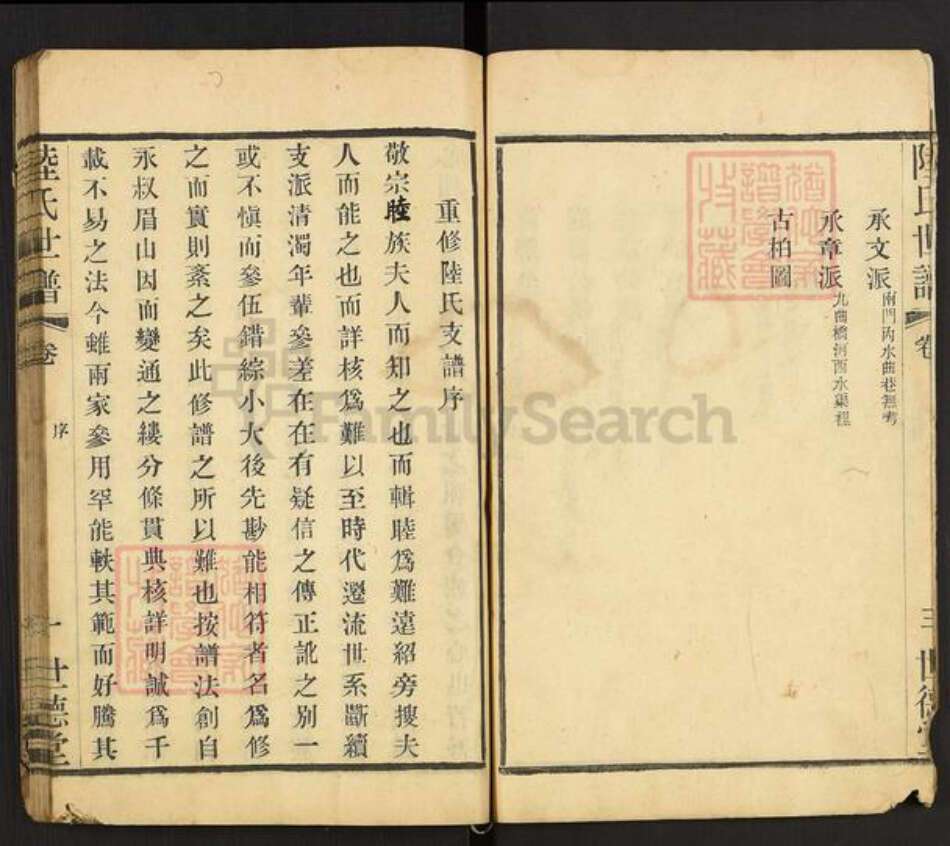 陸氏世譜 卷
三 世德堂
承文派 南門內水曲巷無考
承章派 九曲橋河西水渠程
古柏圖
重修陸氏支譜序
敬宗睦族夫人而知之也而輯睦爲難遠紹旁搜夫
人而能之也而詳核爲難以至時代遷流世系斷續
支派清濁年輩參差在在有疑信之傳正訛之別一
或不愼而參伍錯綜小大後先尠能相符者名爲修
之而實則紊之矣此修譜之所以難也按譜法創自
永叔眉山因而變通之縷分條貫典核詳明誠爲千
載不易之法今雖兩家參用罕能軼其範而好騰其
陸氏世譜 卷 序 一 世德堂
FamilySearch